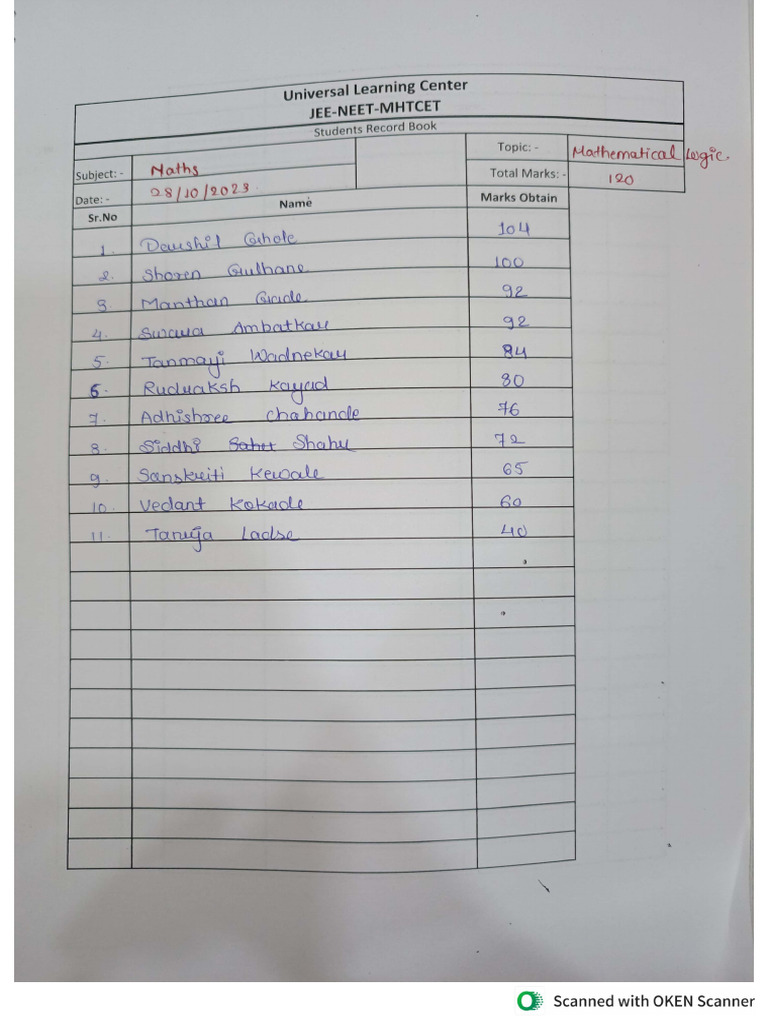 Universal Learning Center
JEE-NEET-MHTCET
Students Record Book
Subject: - Maths Topic: - Mathematical Logic.
Date: - 28/10/2023. Total Marks: - 120
Sr.No Name Marks Obtain
1. Ghole 104
2. Sharen Gulhane 100
3. Manthan Gade 92
4. Swara Ambatkar 92
5. Tanmayi Wadnekar 84
6. Rudraksh Kayad 80
7. Adhishree Chahande 76
8. Siddhi Shahu 72
9. Sanskriti Kewale 65
10. Vedant Kokade 60
11. Tanuja Ladse 40
Scanned with OKEN Scanner